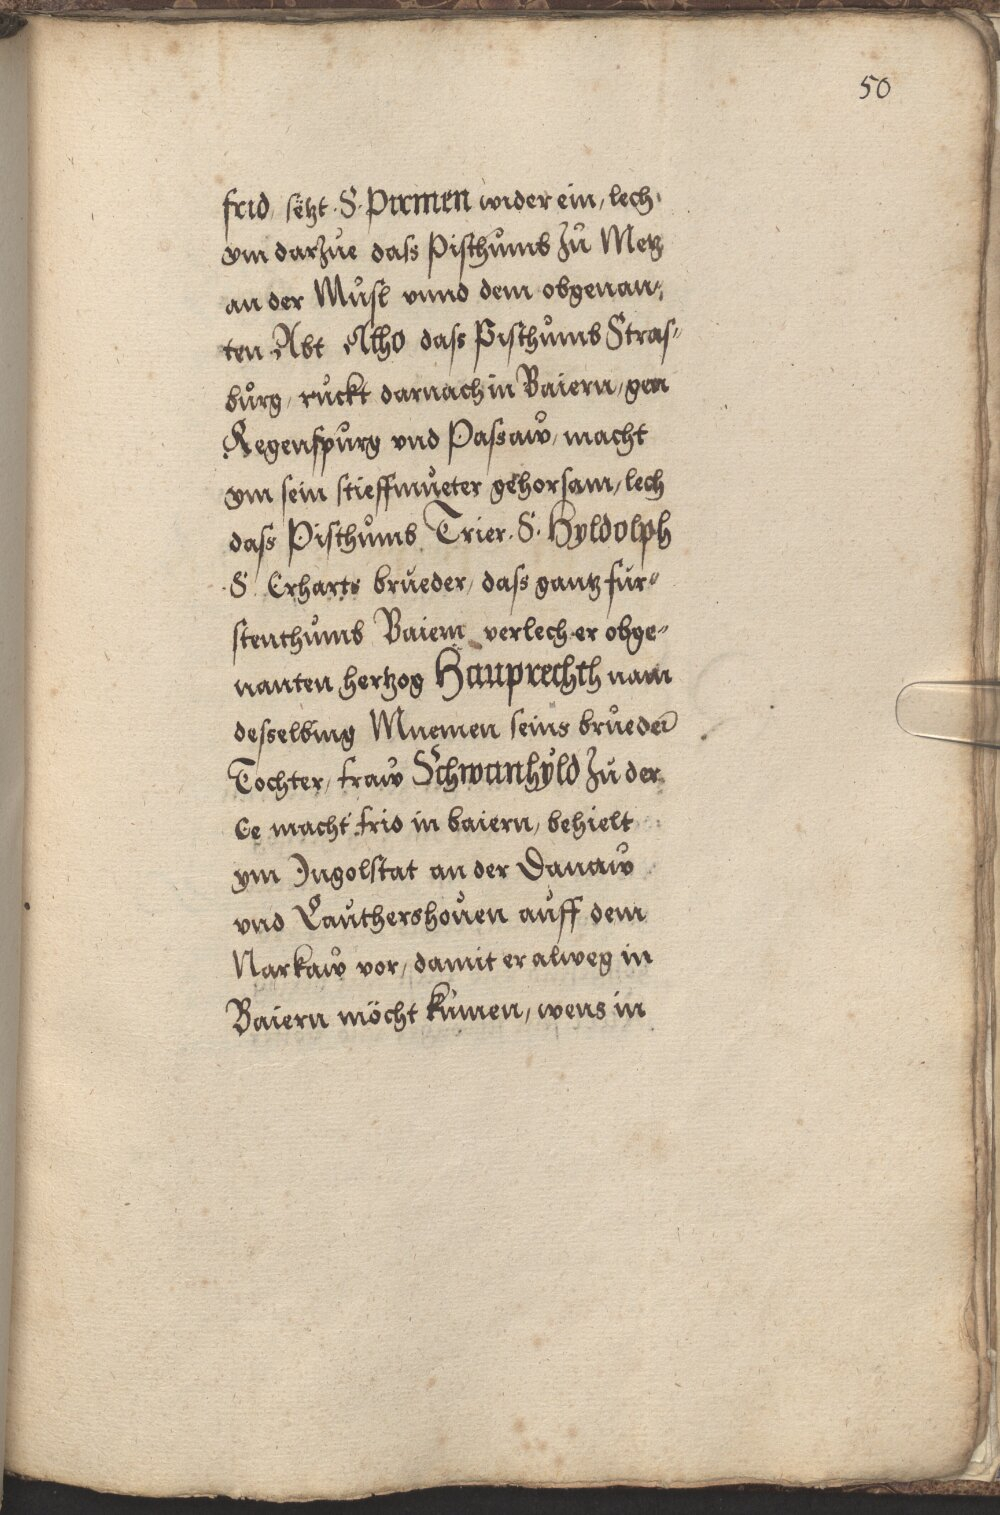 50
frid, setzt .S. Pirmen wider ein, lech
ym darzůe dass Pisthumb zů Metz
an der Můsl vnnd dem obgenan,
ten Abt Atho dass Pisthumb Stras-
burg, ruckt darnach in Baiern, gen
Regenspurg vnd Passaw, macht
ym sein stieffmůeter gehorsam, lech
dass Pisthumb Trier. S. Hyldolph
.S. Erharts brueder, dass gantz für-
stenthumb Baiern verlech er obge-
nanten hertzog Hauprechth nam
desselbing Muemen seins brůeder
Tochter, fraw Schwanhyld zů der
Ee macht frid in baiern, behielt
ym Ingolstat an der Danaw
vnd Lauthershouen auff dem
Narkaw vor, damit er alweg in
Baiern möcht kumen, wens in